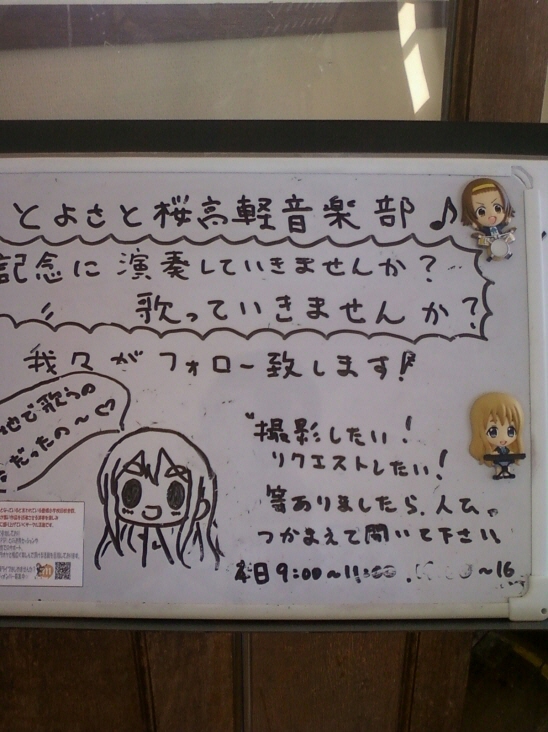 とよさと桜高軽音楽部♪
記念に演奏していきませんか?
歌っていきませんか?
我々がフォロー致します!!
地で歌うの
だったの〜♡
"撮影したい!
リクエストしたい!
等ありましたら、
つかまえて聞いて下さい。
本日 9:00〜11:00
〜16